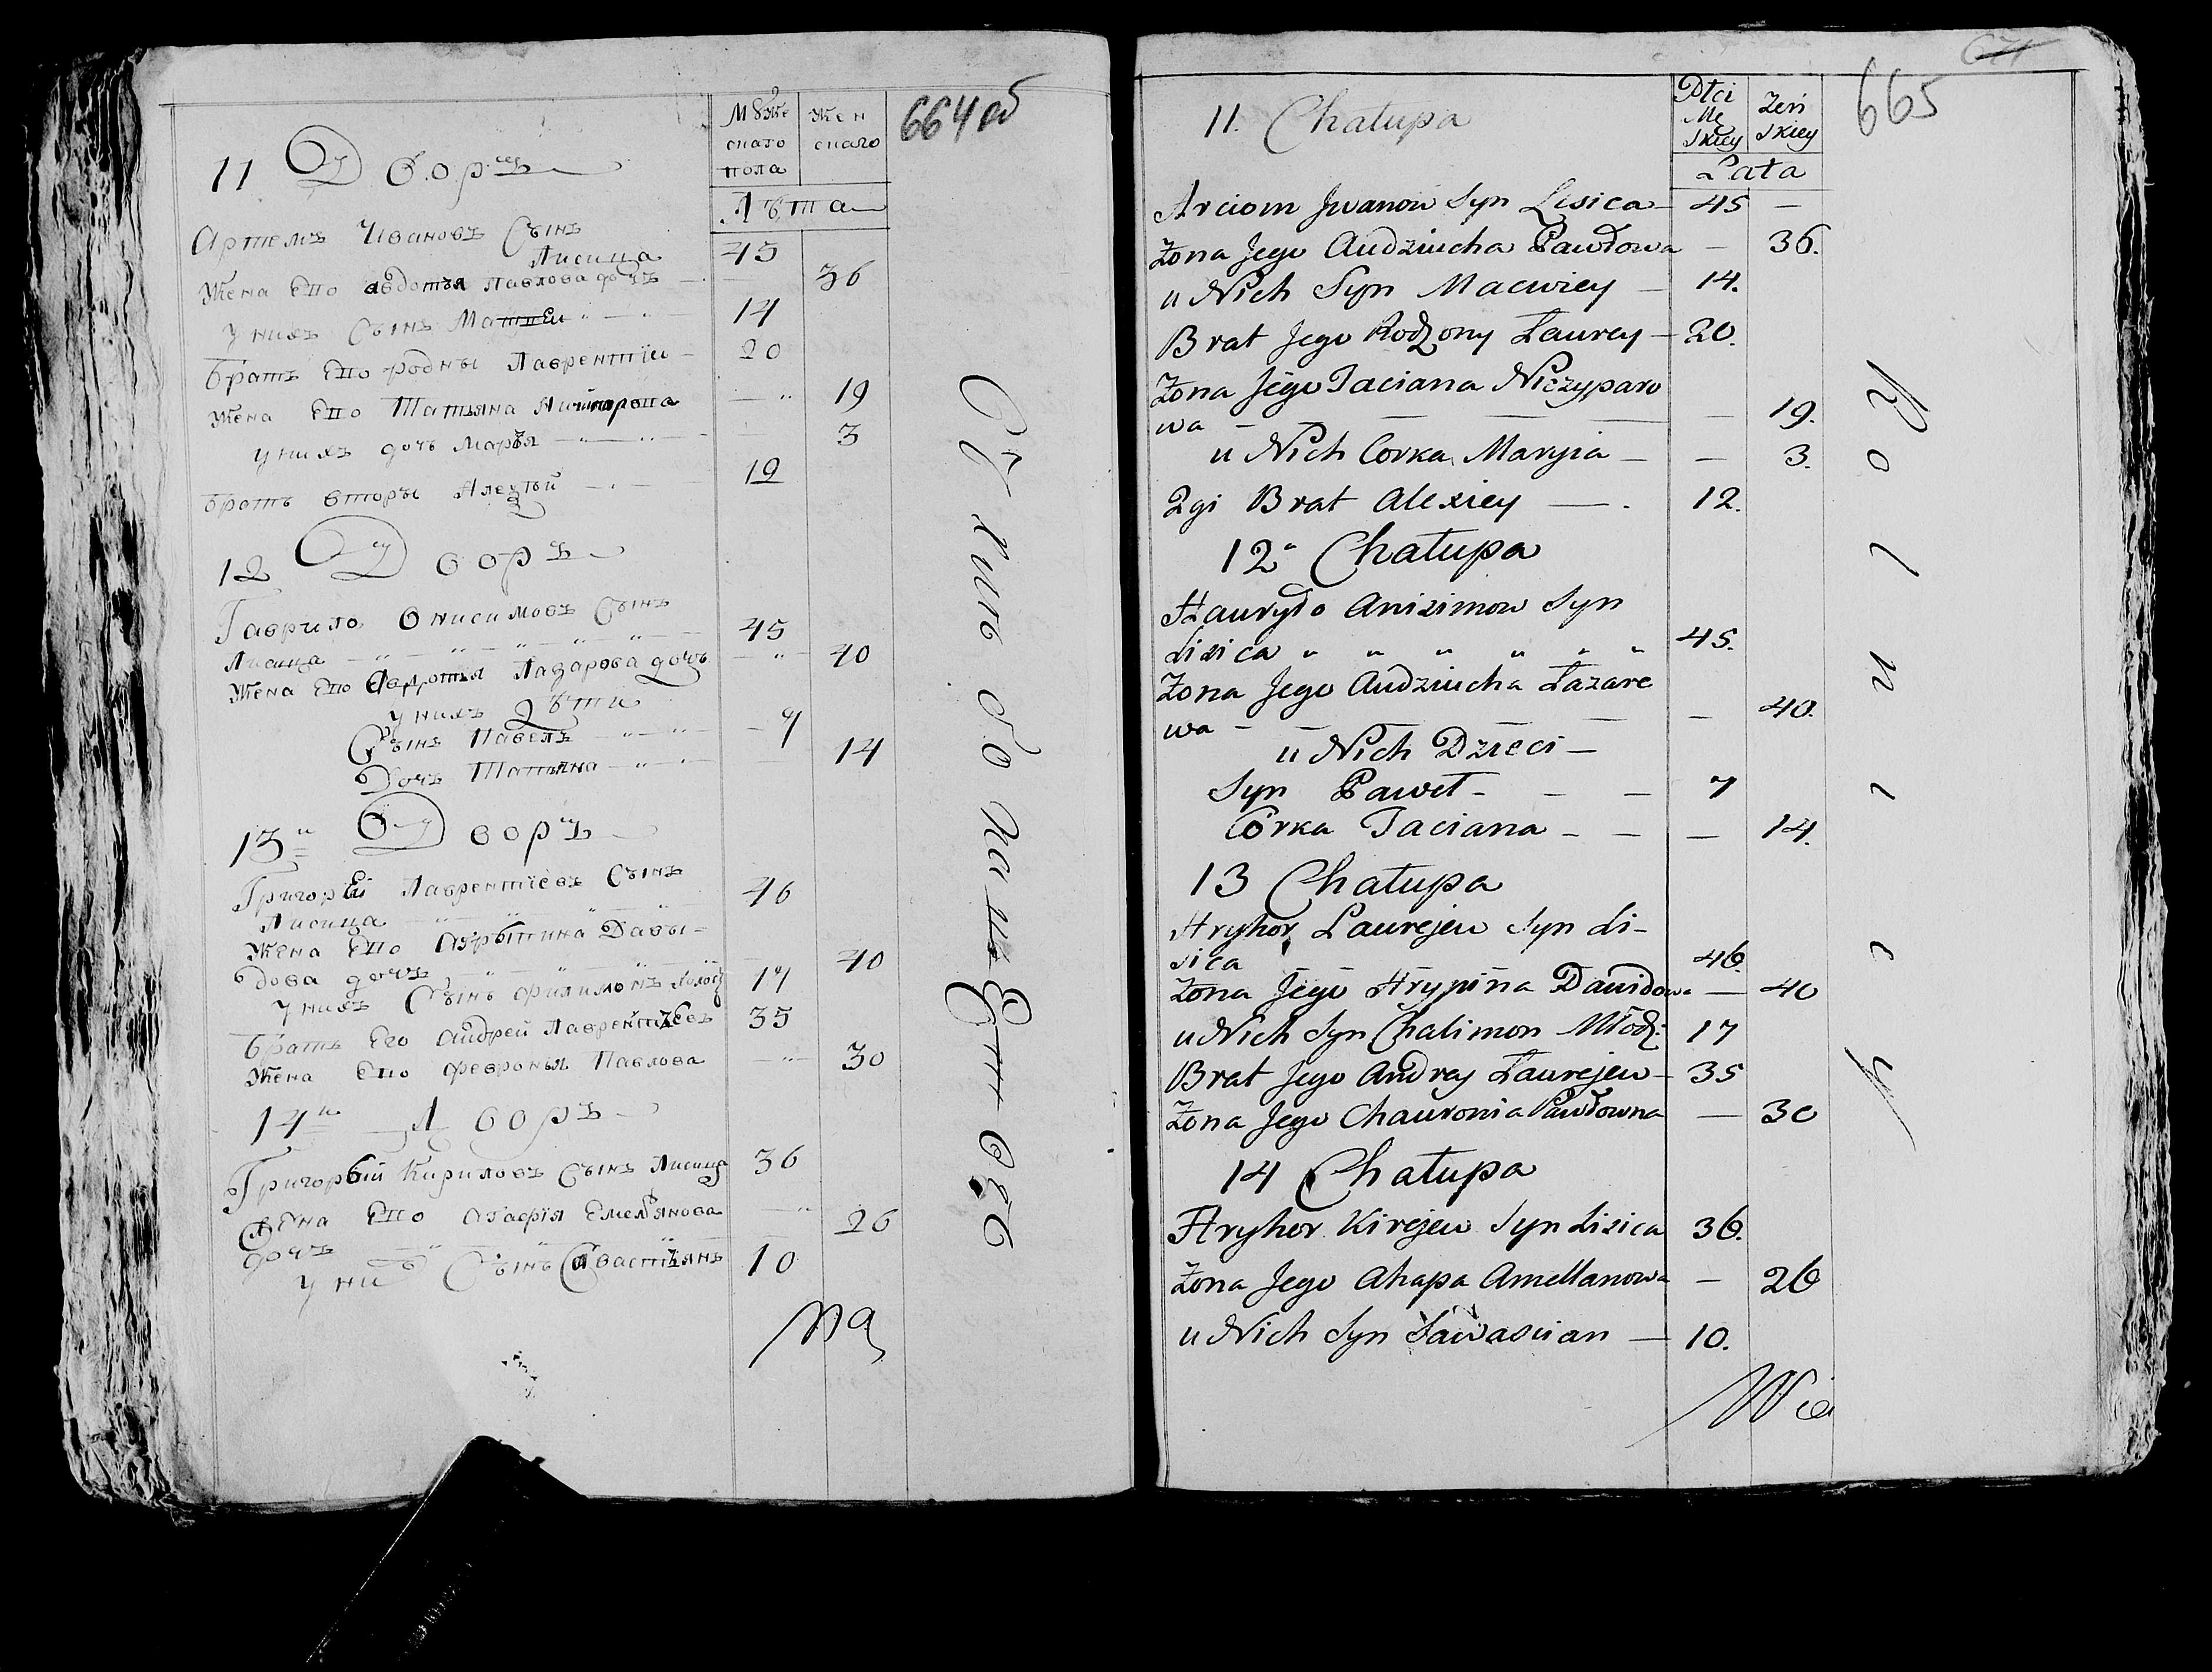 664 об
Мȣже
скаго
пола
Жен
скаго
Лѣта
11 Дворъ
Артемъ Ивановъ Сынъ
Лисица 45
Жена Его Авдотья Павлова дочь — 36
У нихъ Сынъ Матвеи 14
Братъ Его родны Лаврентiи 20
Жена Его Татьяна Ничипорова 19
У нихъ дочь Марья 3
Братъ вторы Алеѯѣй 12
12 Дворъ
Гаврило Онисимовъ Сынъ
Лисица 45
Жена Его Авдотья Лазарова дочь 40
У нихъ Дѣти
Сынъ Павелъ 7
Дочь Татьяна 14
13 Дворъ
Григорей Лаврентiевъ Сынъ
Лисица 46
Жена Его Давы-
дова дочь 40
У нихъ Сынъ Филимонъ 17
Братъ Его Андрей Лаврентьевъ 35
Жена Его Февронья Павлова 30
14 Дворъ
Григорьiй Кириловъ Сынъ Лисица 36
Жена Его Агафiя Емельянова
дочь 26
У них Сынъ Савастьянъ 10
671
665
11. Chałupa
Płci
Mę
skiey
Żeń
skiey
Lata
Arciom Jwanow Syn Lisica — 45 —
Żona Jego Audziucha Pawłowa — 36.
u Nich Syn Maciey — 14.
Brat Jego Rodzony Łaurey — 20.
Żona Jego Taciana Niczyparo
wa — — — — 19.
u Nich Corka Maryia — — 3.
2gi Brat Alexiey — . 12.
12 Chałupa
Hauryło Anisimow Syn
Lisica " " " " " " 45.
Żona Jego Audziucha Łazare
wa — — — — 40.
u Nich Dzieci —
Syn Paweł - — — 7
Córka Taciana - — — 14.
13 Chałupa
Hryhor Łaurejew Syn Li-
sica 46.
Żona Jego Hrypina Dawidowa — 40
u Nich Syn Chalimon Młodz: 17
Brat Jego Andrey Łaurejew — 35
Żona Jego Chauronia Pawłowna — 30
14 Chałupa
Hryhor Kirejew Syn Lisica 36.
Żona Jego Ahapa Amellanowa — 26
u Nich Syn Sawascian — 10.
Wia